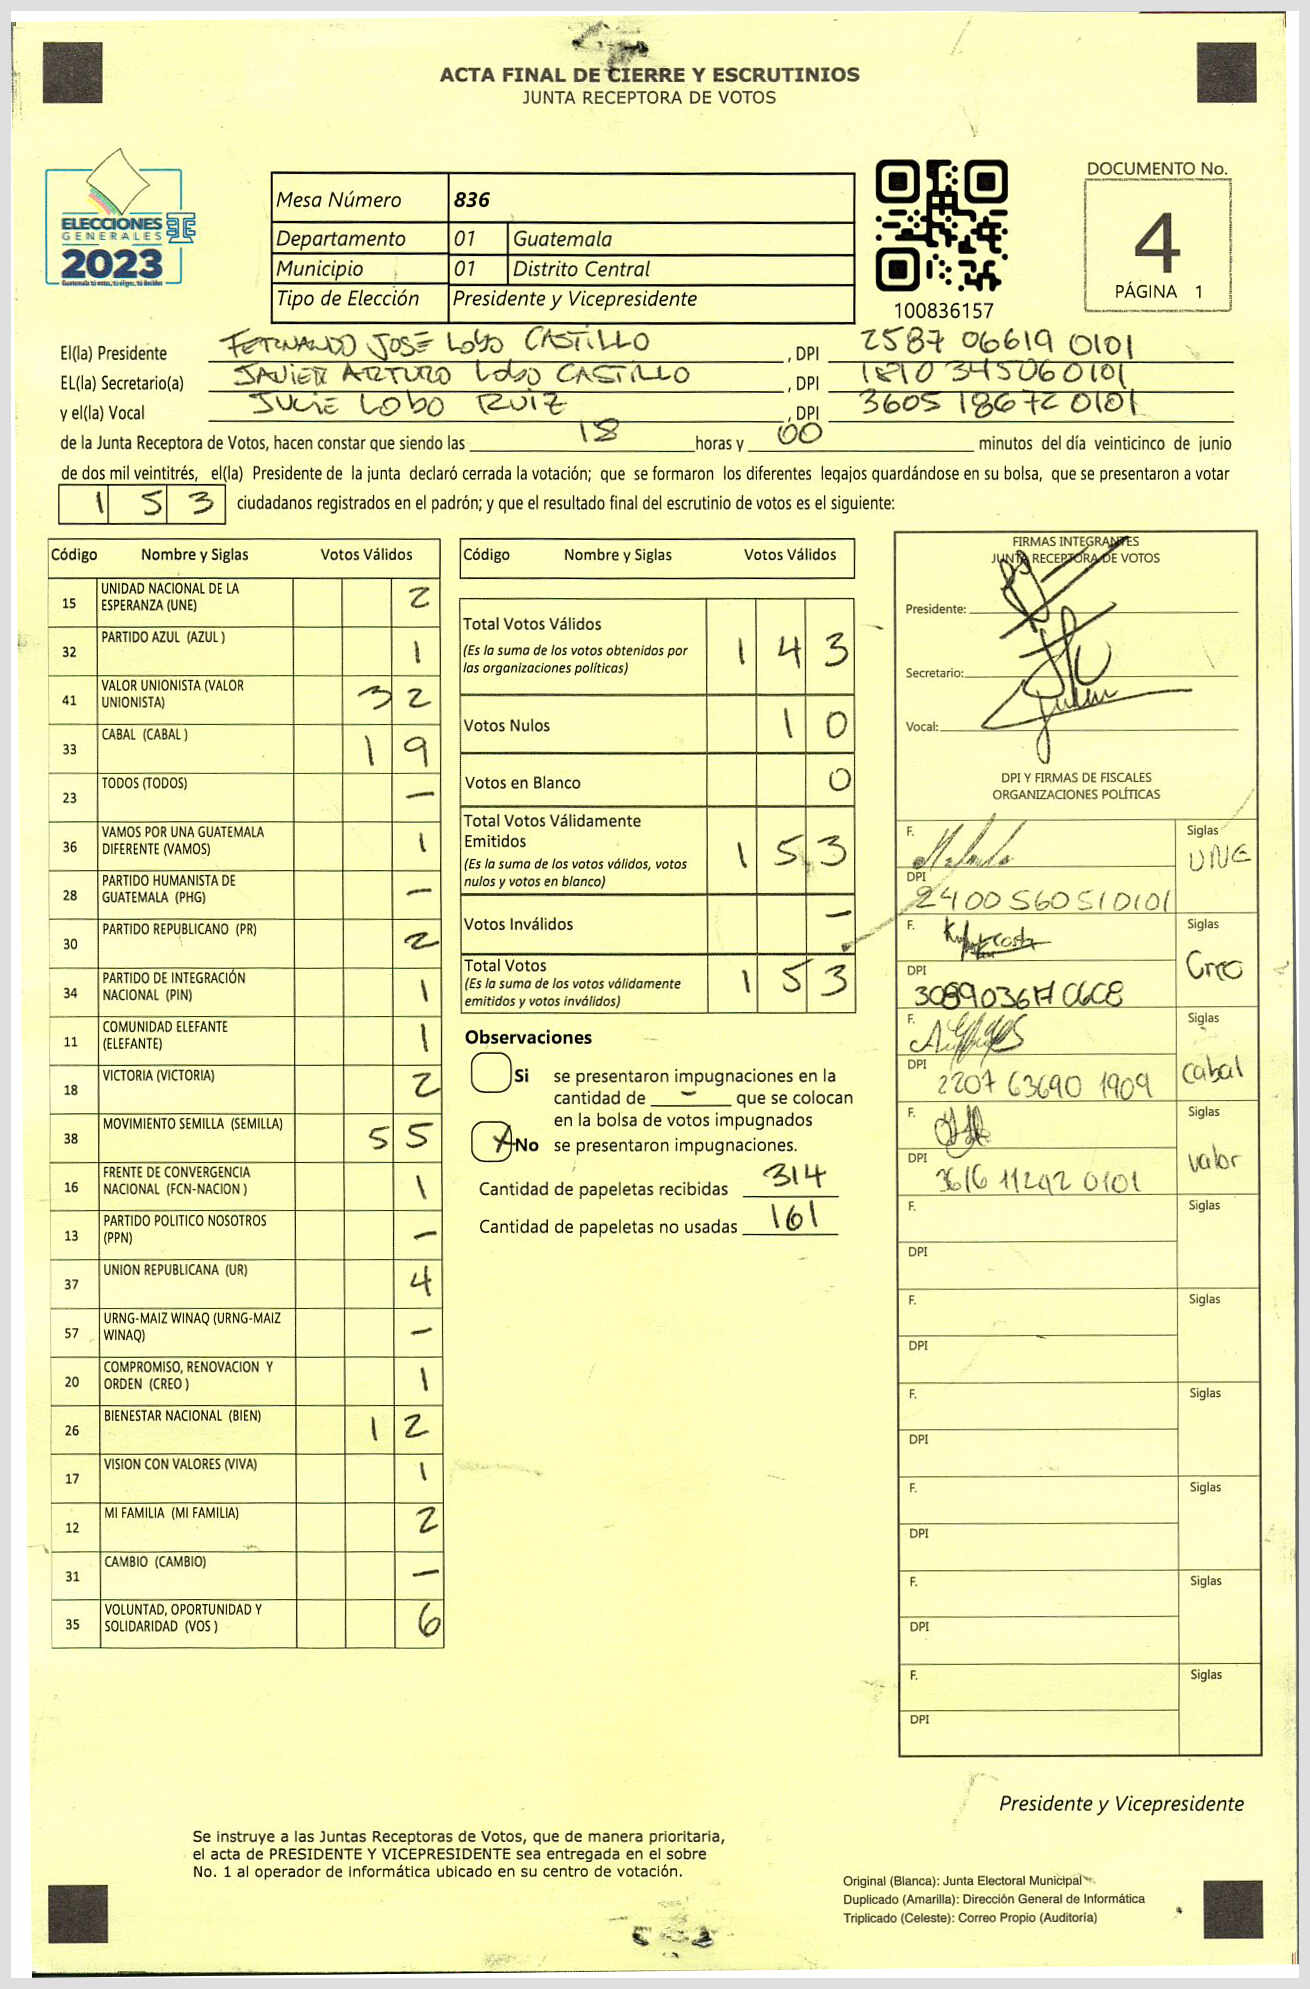 ACTA FINAL DE CIERRE Y ESCRUTINIOS
JUNTA RECEPTORA DE VOTOS
ELECCIONES
GENERALES
2023
Guatemala tú votas, tú eliges, tú decides
Mesa Número 836
Departamento 01 Guatemala
Municipio 01 Distrito Central
Tipo de Elección Presidente y Vicepresidente
100836157
DOCUMENTO No.
4
PÁGINA 1
El(la) Presidente FERNANDO JOSE LOBO CASTILLO , DPI 2587 06619 0101
EL(la) Secretario(a) JAVIER ARTURO LOBO CASTILLO , DPI 1810 34506 0101
y el(la) Vocal JULIE LOBO RUIZ , DPI 3605 18672 0101
de la Junta Receptora de Votos, hacen constar que siendo las 18 horas y 00 minutos del día veinticinco de junio
de dos mil veintitrés, el(la) Presidente de la junta declaró cerrada la votación; que se formaron los diferentes legajos guardándose en su bolsa, que se presentaron a votar
153 ciudadanos registrados en el padrón; y que el resultado final del escrutinio de votos es el siguiente:
Código Nombre y Siglas Votos Válidos
15 UNIDAD NACIONAL DE LA ESPERANZA (UNE) 2
32 PARTIDO AZUL (AZUL ) 1
41 VALOR UNIONISTA (VALOR UNIONISTA) 32
33 CABAL (CABAL ) 19
23 TODOS (TODOS) —
36 VAMOS POR UNA GUATEMALA DIFERENTE (VAMOS) 1
28 PARTIDO HUMANISTA DE GUATEMALA (PHG) —
30 PARTIDO REPUBLICANO (PR) 2
34 PARTIDO DE INTEGRACIÓN NACIONAL (PIN) 1
11 COMUNIDAD ELEFANTE (ELEFANTE) 1
18 VICTORIA (VICTORIA) 2
38 MOVIMIENTO SEMILLA (SEMILLA) 55
16 FRENTE DE CONVERGENCIA NACIONAL (FCN-NACION ) 1
13 PARTIDO POLITICO NOSOTROS (PPN) —
37 UNION REPUBLICANA (UR) 4
57 URNG-MAIZ WINAQ (URNG-MAIZ WINAQ) —
20 COMPROMISO, RENOVACION Y ORDEN (CREO ) 1
26 BIENESTAR NACIONAL (BIEN) 12
17 VISION CON VALORES (VIVA) 1
12 MI FAMILIA (MI FAMILIA) 2
31 CAMBIO (CAMBIO) —
35 VOLUNTAD, OPORTUNIDAD Y SOLIDARIDAD (VOS ) 6
Código Nombre y Siglas Votos Válidos
Total Votos Válidos 143
(Es la suma de los votos obtenidos por
las organizaciones políticas)
Votos Nulos 10
Votos en Blanco 0
Total Votos Válidamente
Emitidos 153
(Es la suma de los votos válidos, votos
nulos y votos en blanco)
Votos Inválidos —
Total Votos 153
(Es la suma de los votos válidamente
emitidos y votos inválidos)
Observaciones
Si se presentaron impugnaciones en la
cantidad de — que se colocan
en la bolsa de votos impugnados
X No se presentaron impugnaciones.
Cantidad de papeletas recibidas 314
Cantidad de papeletas no usadas 161
FIRMAS INTEGRANTES
JUNTA RECEPTORA DE VOTOS
Presidente:
Secretario:
Vocal:
DPI Y FIRMAS DE FISCALES
ORGANIZACIONES POLÍTICAS
F. Siglas
UNE
DPI 2400 56051 0101
F. Siglas
Creo
DPI
F. Siglas
cabal
DPI 2207 63690 1909
F. Siglas
valor
DPI 3616 11292 0101
F. Siglas
DPI
F. Siglas
DPI
F. Siglas
DPI
F. Siglas
DPI
F. Siglas
DPI
F. Siglas
DPI
Presidente y Vicepresidente
Se instruye a las Juntas Receptoras de Votos, que de manera prioritaria,
el acta de PRESIDENTE Y VICEPRESIDENTE sea entregada en el sobre
No. 1 al operador de informática ubicado en su centro de votación.
Original (Blanca): Junta Electoral Municipal
Duplicado (Amarilla): Dirección General de Informática
Triplicado (Celeste): Correo Propio (Auditoría)